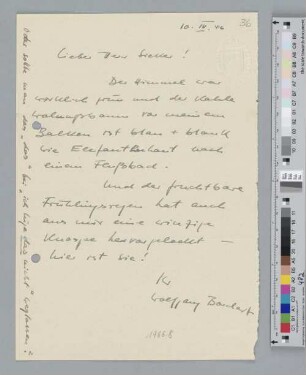 36
10. IV. 46
Lieber Herr Sieker!
Der Himmel war
wirklich grün und der kahle
Walnussbaum vor meinem
Balkon ist blau + blank
wie Elefantenhaut nach
einem Flußbad.
Und der fruchtbare
Frühlingsregen hat auch
aus mir eine winzige
Knospe hervorgelockt –
hier ist sie!
Ihr
Wolfgang Borchert
oder sollte man den „das“ bei „ich lüge das nicht“ weglassen?